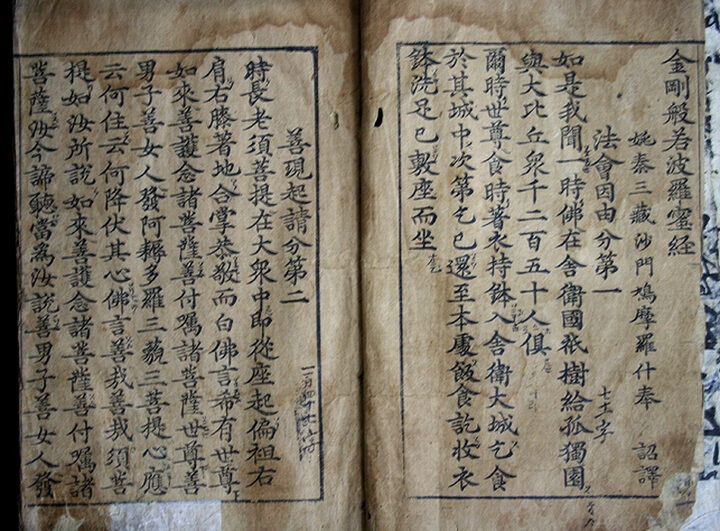 金剛般若波羅蜜経
姚秦三藏沙門鳩摩羅什奉 詔譯
法會因由分第一
七十五字
如是我聞一時佛在舍衛國祇樹給孤獨園
與大比丘衆千二百五十人俱
爾時世尊食時著衣持鉢入舍衛大城乞食
於其城中次第乞已還至本處飯食訖收衣
鉢洗足已敷座而坐
善現起請分第二
時長老須菩提在大衆中即從座起偏袒右
肩右膝著地合掌恭敬而白佛言希有世尊
如來善護念諸菩薩善付囑諸菩薩世尊善
男子善女人發阿耨多羅三藐三菩提心應
云何住云何降伏其心佛言善哉善哉須菩
提如汝所說如來善護念諸菩薩善付囑諸
菩薩汝今諦聽當為汝說善男子善女人發